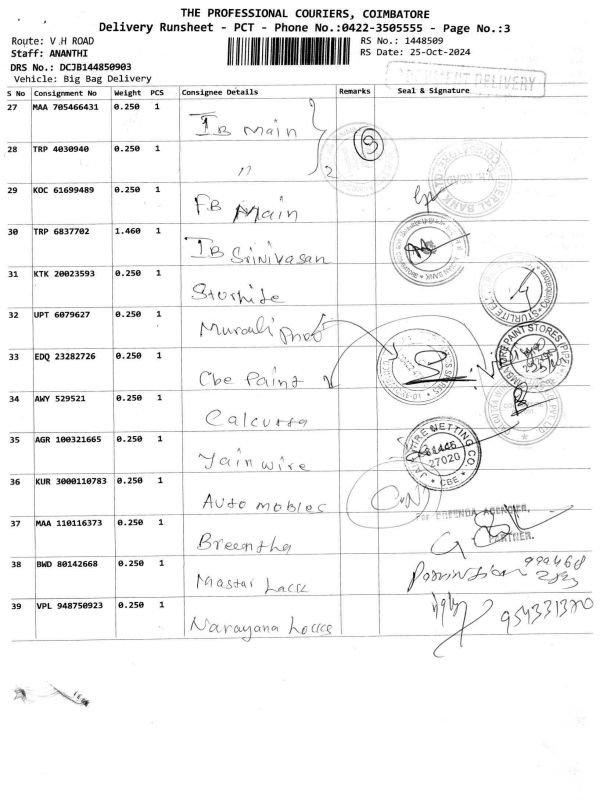 THE PROFESSIONAL COURIERS, COIMBATORE
Delivery Runsheet - PCT - Phone No.:0422-3505555 - Page No.:3
Route: V H ROAD
RS No.: 1448509
Staff: ANANTHI
RS Date: 25-Oct-2024
DRS No.: DCJB144850903
Vehicle: Big Bag Delivery
DOCUMENT DELIVERY
S No Consignment No Weight PCS Consignee Details Remarks Seal & Signature
27 MAA 705466431 0.250 1 IB Main
28 TRP 4030940 0.250 1 " 2
29 KOC 61699489 0.250 1 FB Main
30 TRP 6837702 1.460 1 IB Srinivasan
31 KTK 20023593 0.250 1 Sturlite
32 UPT 6079627 0.250 1 Murali
33 EDQ 23282726 0.250 1 Cbe Paint
34 AWY 529521 0.250 1 Calcutta
35 AGR 100321665 0.250 1 Jain wire
36 KUR 3000110783 0.250 1 Auto mobles
37 MAA 110116373 0.250 1 Breentha
38 BWD 80142668 0.250 1 Mastar Lock
39 VPL 948750923 0.250 1 Narayana Locks
FEDERAL BANK
STURLITE
PAINT STORES
WIRE NETTING CO.
27020
CBE
For BREENDA AGENCIES,
PARTNER.